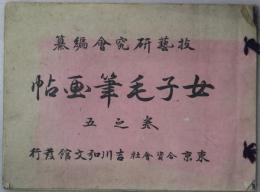 技藝研究會編纂
女子毛筆画帖
卷之五
東京 合資會社 吉川弘文館發行